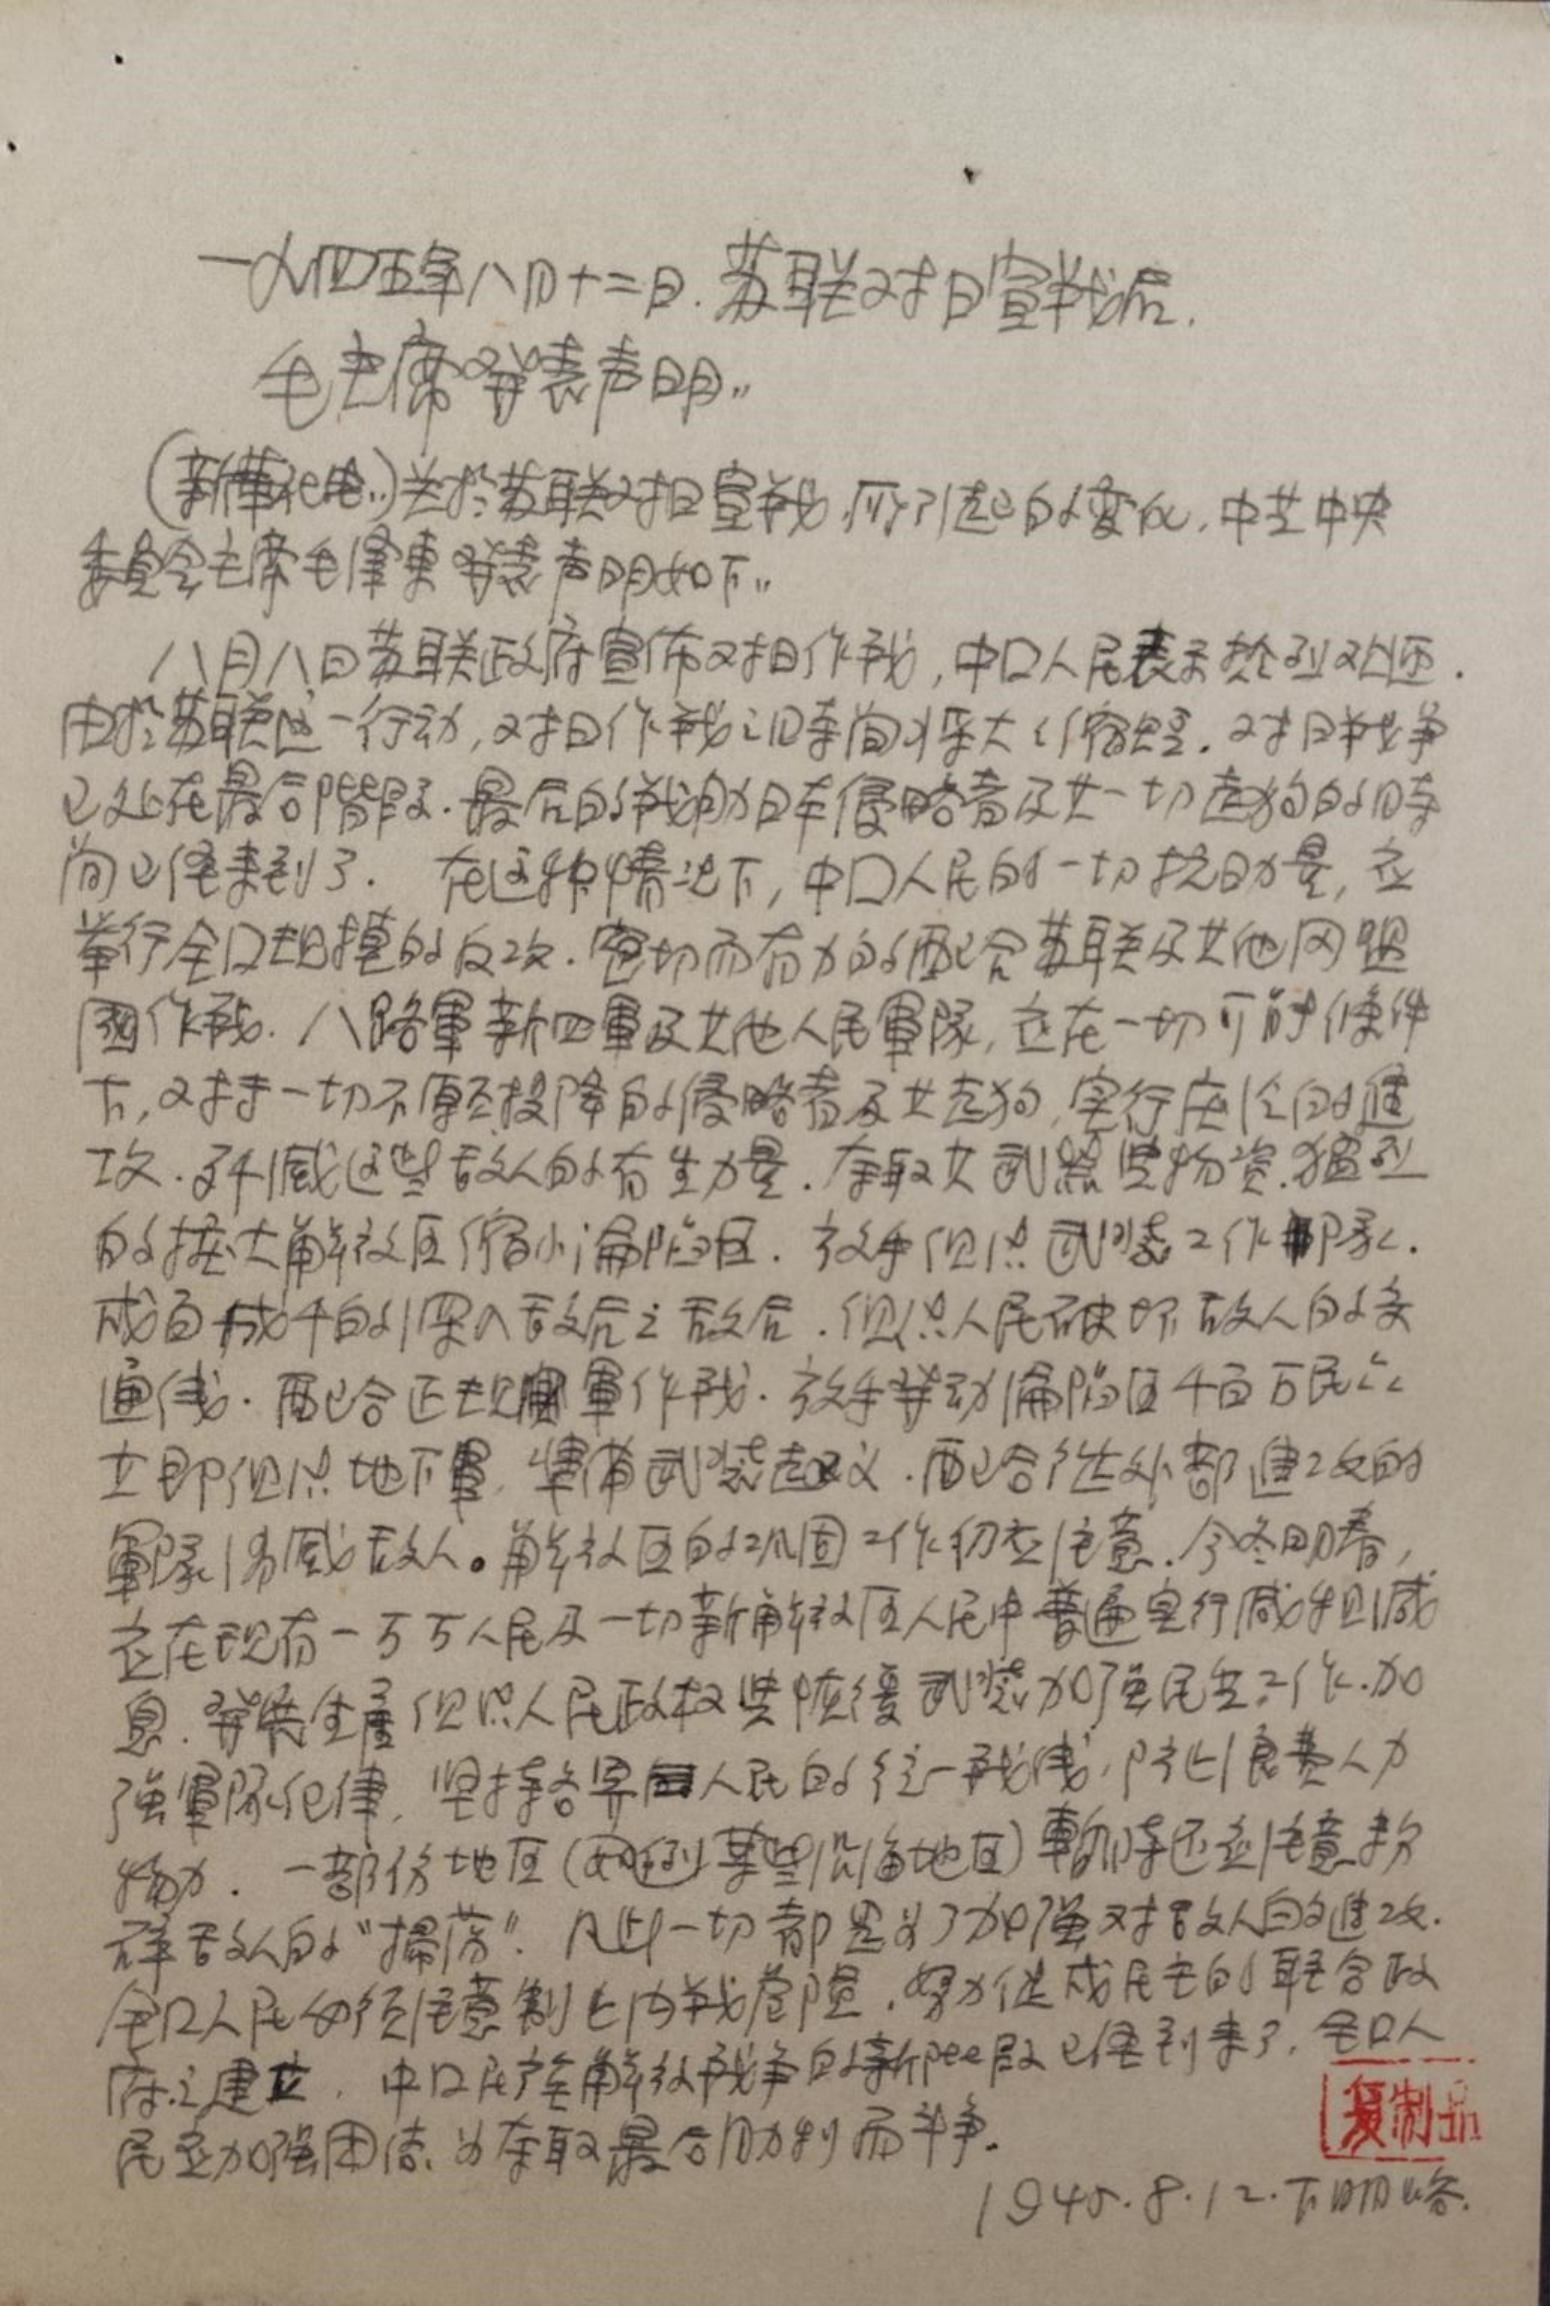 一九四五年八月十二日.苏联对日宣战后.
毛主席發表声明..
(新华社电..)关於苏联对日宣战,所引起的变化.中共中央
委員会主席毛澤東發表声明如下..
八月八日苏联政府宣佈对日作战,中口人民表示热烈欢迎.
由於苏联这一行动,对日作战之时间将大大缩短.对日战争
已处在最后階段.最后的战胜日本侵略者及其一切走狗的时
间已经来到了.在这种情況下,中口人民的一切抗日力量,应
举行全口規模的反攻.密切而有力的配合苏联及其他同盟
國作战.八路軍新四軍及其他人民軍隊,应在一切可能條件
下,对于一切不願投降的侵略者及其走狗,实行廣泛的進
攻.歼滅这些敌人的有生力量.夺取其武器与物资.猛烈
的扩大解放区缩小淪陷区.放手组织武装工作部隊.
成百成千的深入敌后之敌后.组织人民破坏敌人的交
通线.配合正规軍作战.放手發动淪陷区千百万民众
立即组织地下軍,準備武装起义.配合從外部進攻的
軍隊消滅敌人。解放区的巩固工作仍应注意.今冬明春,
应在现有一万万人民及一切新解放区人民中普遍实行减租减
息.發展生產组织人民政权与恢復武装加强民兵工作.加
強軍隊纪律,坚持各界人民的统一战线,防止浪费人力
物力.一部份地区(如某些沿海地区)暫时还应注意粉
碎敌人的"掃荡".凡此一切都是为了加强对敌人的進攻.
全口人民必须注意制止内战危险.努力促成民主的联合政
府之建立.中口民族解放战争的新阶段已经到来了,全口人
民应加强团结、为夺取最后胜利而斗争。
复制品
1945.8.12.下明略.